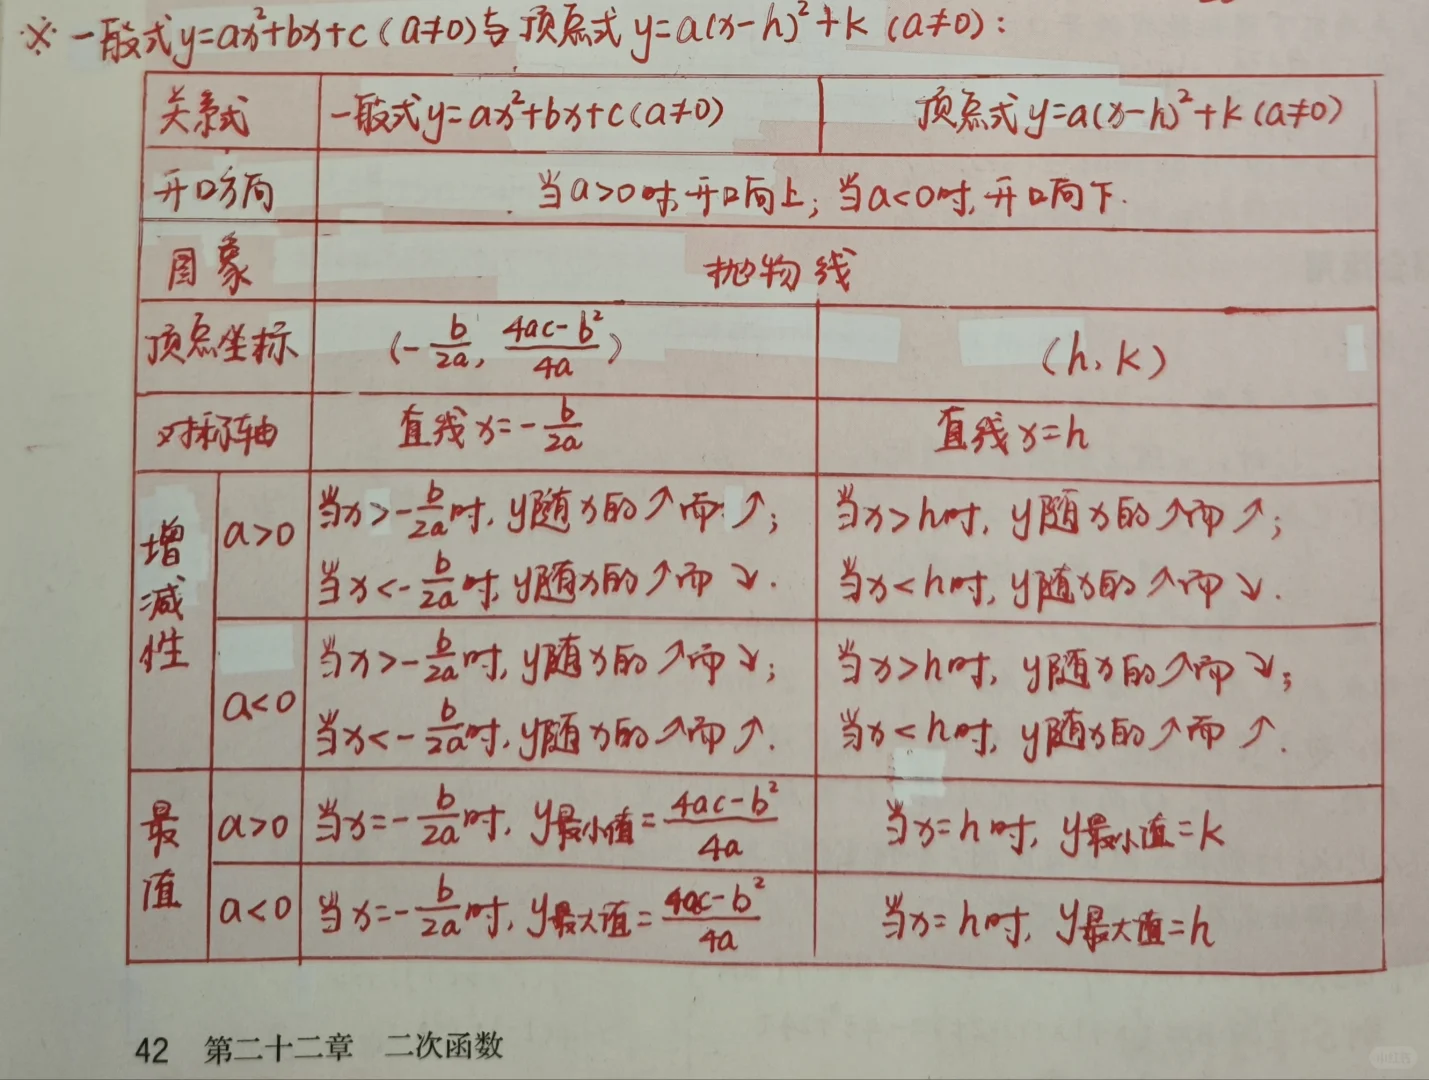 ※ 一般式y=ax²+bx+c（a≠0）与顶点式 y=a(x-h)²+k（a≠0）：
关系式 一般式y=ax²+bx+c(a≠0) 顶点式 y=a(x-h)²+k(a≠0)
开口方向 当a>0时,开口向上；当a<0时,开口向下.
图象 抛物线
顶点坐标 (-b/2a, (4ac-b²)/4a) (h,k)
对称轴 直线x=-b/2a 直线x=h
增减性
a>0 当x>-b/2a时, y随x的↗而↗; 当x>h时, y随x的↗而↗;
当x<-b/2a时, y随x的↗而↘. 当x<h时, y随x的↗而↘.
a<0 当x>-b/2a时, y随x的↗而↘; 当x>h时, y随x的↗而↘;
当x<-b/2a时, y随x的↗而↗. 当x<h时, y随x的↗而↗.
最值
a>0 当x=-b/2a时, y最小值=(4ac-b²)/4a 当x=h时, y最小值=k
a<0 当x=-b/2a时, y最大值=(4ac-b²)/4a 当x=h时, y最大值=h
42 第二十二章 二次函数
小红书